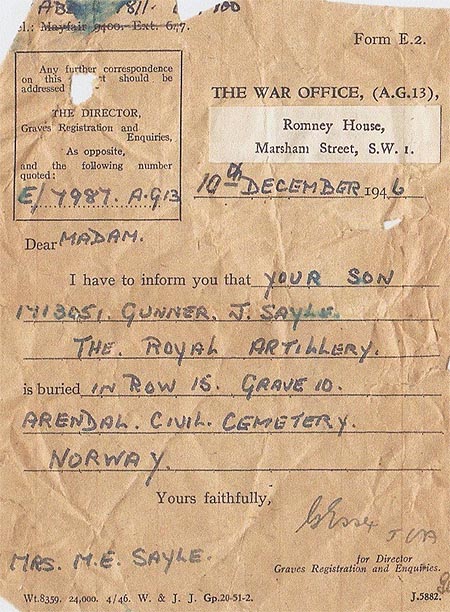 Tel.: Mayfair 9400. Ext. 647.
Form E.2.
Any further correspondence
on this should be
addressed
THE DIRECTOR,
Graves Registration and
Enquiries,
As opposite,
and the following number
quoted:
E/7987. A.G13
THE WAR OFFICE, (A.G.13),
Romney House,
Marsham Street, S.W. 1.
10th DECEMBER 1946
Dear MADAM.
I have to inform you that YOUR SON
1713051. GUNNER. J. SAYLE.
THE. ROYAL ARTILLERY.
is buried IN ROW 15. GRAVE 10.
ARENDAL. CIVIL. CEMETERY.
NORWAY.
Yours faithfully,
for Director
Graves Registration and Enquiries.
MRS. M.E. SAYLE.
Wt.8359. 24,000. 4/46. W. & J. J. Gp.20-51-2.
J.5882.